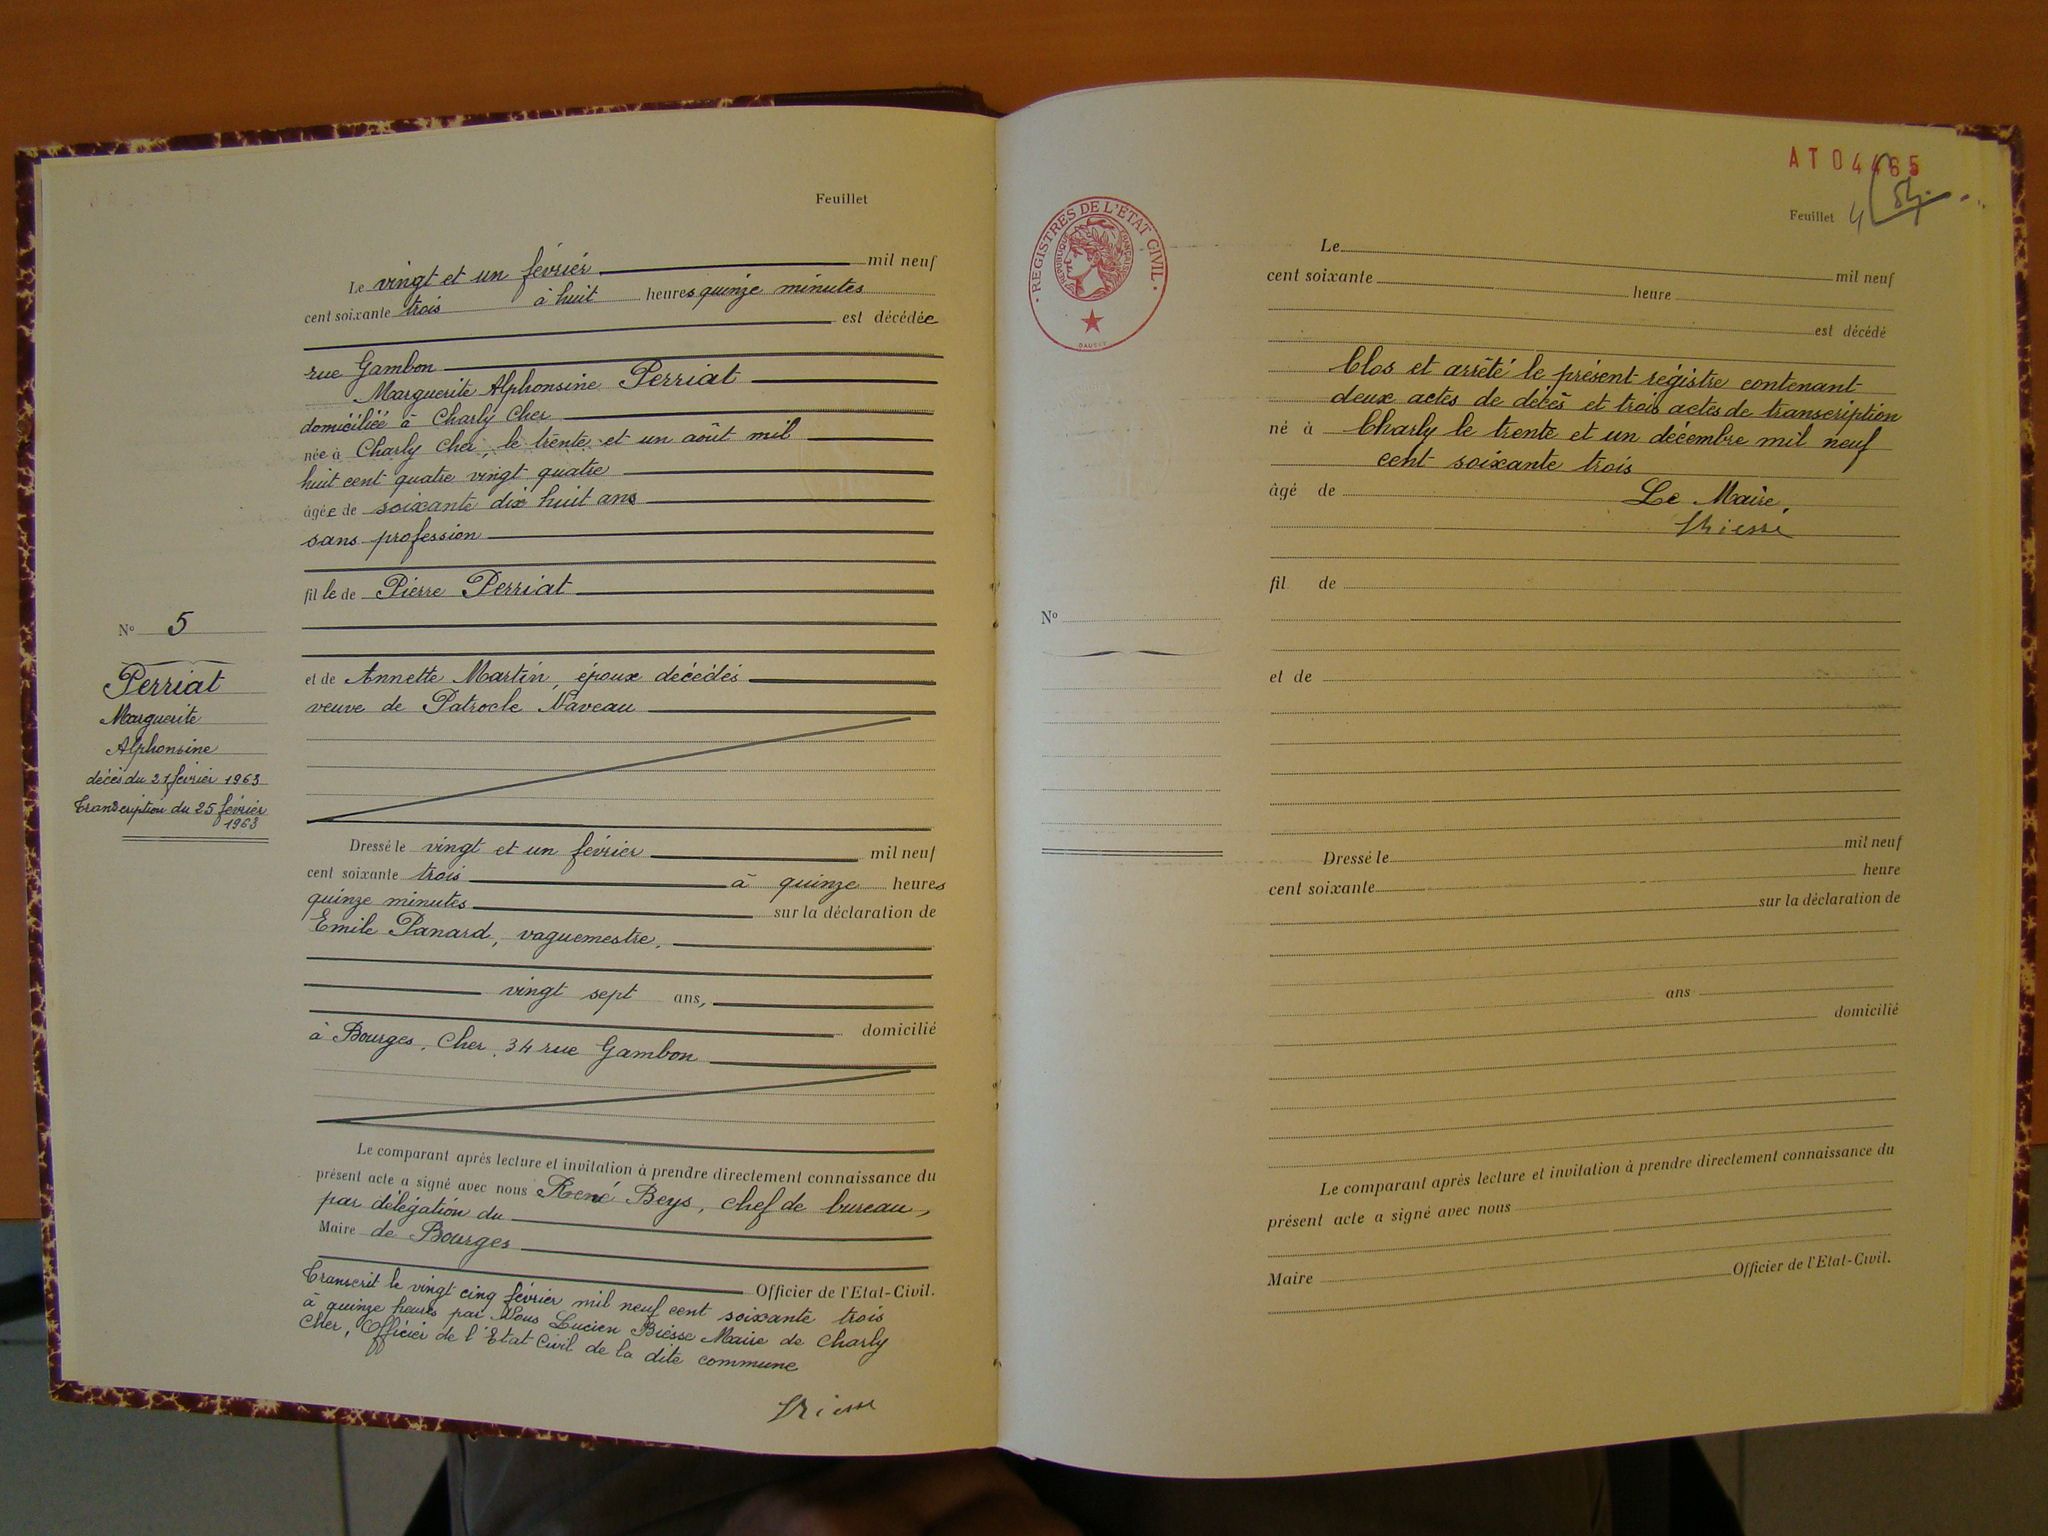 Feuillet
Le vingt et un février mil neuf
cent soixante trois à huit heures quinze minutes
est décédée
rue Gambon
Marguerite Alphonsine Perriat
domiciliée à Charly Cher
née à Charly Cher, le trente et un août mil
huit cent quatre vingt quatre
âgée de soixante dix huit ans
sans profession
fille de Pierre Perriat
N° 5
Perriat
Marguerite
Alphonsine
décès du 21 février 1963
Transcription du 25 février
1963
et de Annette Martin, époux décédés
veuve de Patrocle Naveau
Dressé le vingt et un février mil neuf
cent soixante trois à quinze heures
quinze minutes sur la déclaration de
Emile Panard, vaguemestre,
vingt sept ans,
domicilié
à Bourges, Cher, 34 rue Gambon
Le comparant après lecture et invitation à prendre directement connaissance du
présent acte a signé avec nous René Beys, chef de bureau,
par délégation du
Maire de Bourges
Officier de l'Etat-Civil.
Transcrit le vingt cinq février mil neuf cent soixante trois
à quinze heures par Nous Lucien Biesse Maire de Charly
Cher, Officier de l'Etat Civil de la dite commune
AT04465
Feuillet 4
REGISTRES DE L'ETAT CIVIL
REPUBLIQUE FRANÇAISE
Le
mil neuf
cent soixante heure
est décédé
Clos et arrêté le présent régistre contenant
deux actes de décès et trois actes de transcription
né à Charly le trente et un décembre mil neuf
cent soixante trois
âgé de Le Maire,
fil de
N°
et de
Dressé le mil neuf
cent soixante heure
sur la déclaration de
ans
domicilié
Le comparant après lecture et invitation à prendre directement connaissance du
présent acte a signé avec nous
Maire Officier de l'Etat-Civil.